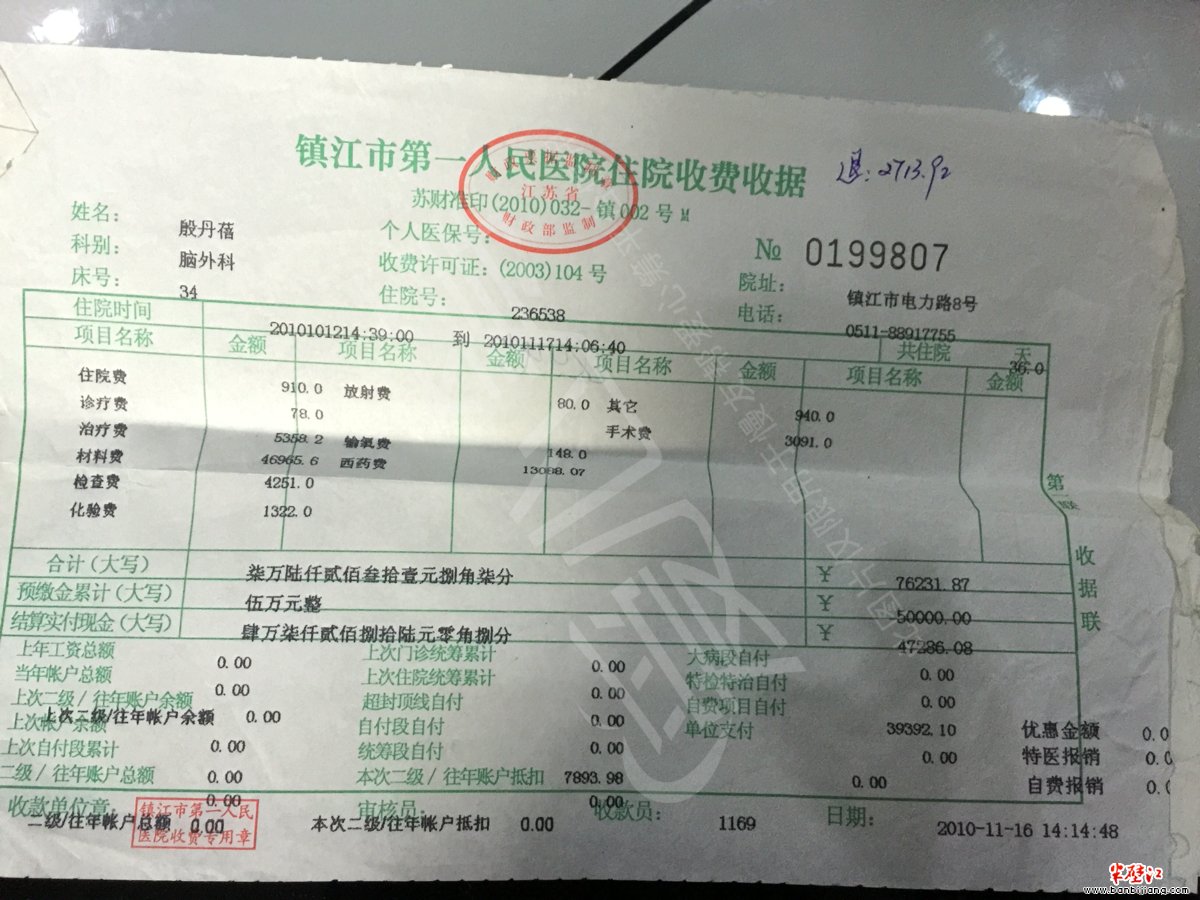 镇江市第一人民医院住院收费收据
退:2713.92
苏财准印(2010)032-镇002号M
江苏省
财政部监制
姓名: 殷丹蓓 个人医保号:
№ 0199807
科别: 脑外科 收费许可证:(2003)104号 院址: 镇江市电力路8号
床号: 34 住院号: 236538 电话: 0511-88917755
住院时间 2010101214:39:00 到 2010111714:06:40 共住院 36.0 天
项目名称 金额 项目名称 金额 项目名称 金额 项目名称 金额
住院费 910.0 放射费 80.0 其它 940.0
诊疗费 78.0 手术费 3091.0
治疗费 5358.2 输氧费 148.0
材料费 46965.6 西药费 13088.07
检查费 4251.0
化验费 1322.0
第一联
收据联
合计(大写) 柒万陆仟贰佰叁拾壹元捌角柒分 ¥ 76231.87
预缴金累计(大写) 伍万元整 ¥ 50000.00
结算实付现金(大写) 肆万柒仟贰佰捌拾陆元零角捌分 ¥ 47286.08
上年工资总额 0.00 上次门诊统筹累计 0.00 大病段自付 0.00
当年帐户总额 0.00 上次住院统筹累计 0.00 特检特治自付 0.00
上次二级/往年账户余额 超封顶线自付 0.00 自费项目自付
上次二级/往年帐户余额 0.00
上次帐户余额 自付段自付 单位支付 39392.10 优惠金额 0.0
上次自付段累计 0.00 统筹段自付 0.00 0.00 特医报销 0.0
二级/往年账户总额 0.00 本次二级/往年账户抵扣 7893.98 0.00 自费报销 0.0
收款单位章: 0.00 审核员: 0.00 收款员: 1169 日期: 2010-11-16 14:14:48
二级/往年帐户总额 0.00 本次二级/往年帐户抵扣 0.00
镇江市第一人民
医院收费专用章
半壁江
www.banbijiang.com